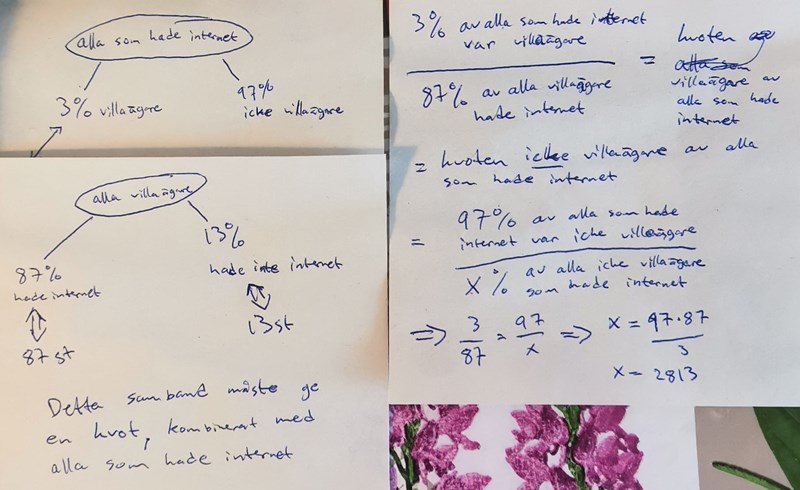 alla som hade internet
3% villaägare
97%
icke villaägare
alla villaägare
87%
hade internet
87 st
13%
hade inte internet
13st
Detta samband måste ge
en kvot, kombinerat med
alla som hade internet
3% av alla som hade internet
var villaägare
87% av alla villaägare
hade internet
=
kvoten
villaägare av
alla som hade
internet
= kvoten icke villaägare av alla
som hade internet
= 97% av alla som hade
internet var icke villaägare
X% av alla icke villaägare
som hade internet
⇒ 3/87 = 97/x ⇒ x = 97·87/3
x = 2813